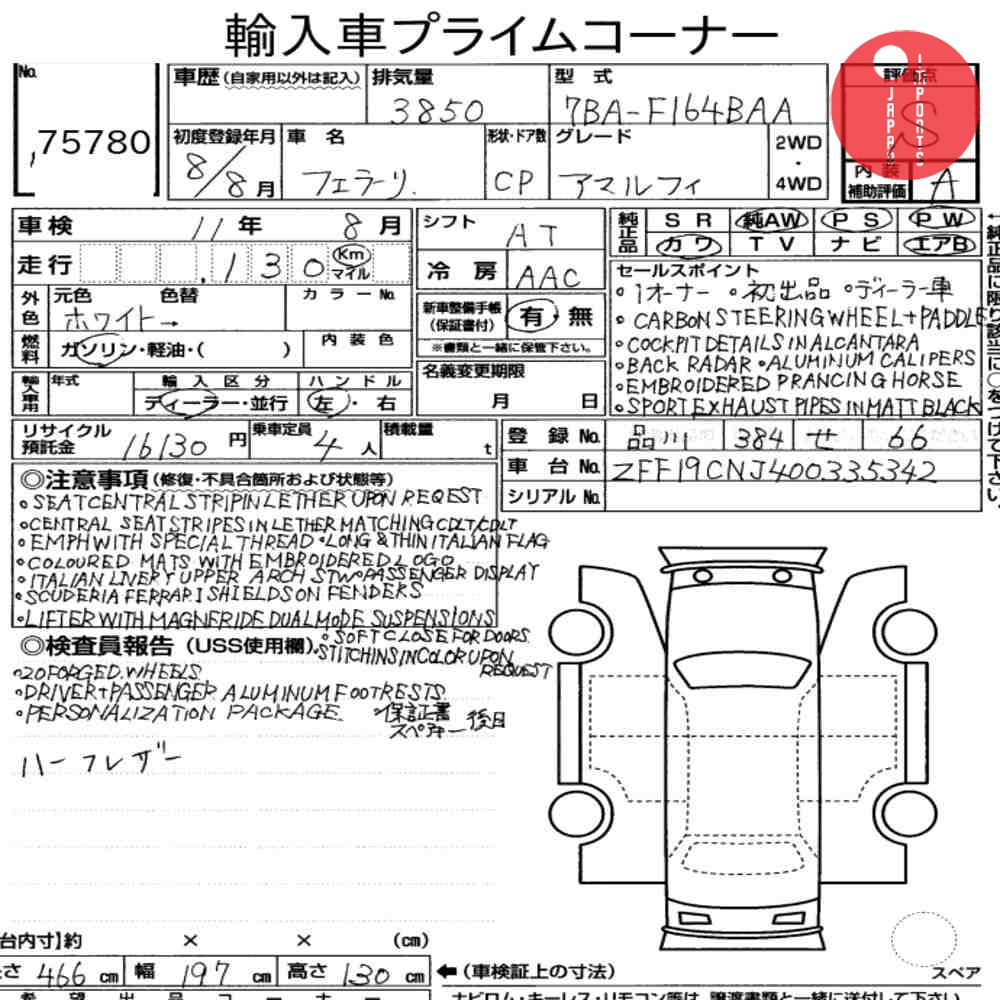 輸入車プライムコーナー
No. 75780
車歴(自家用以外は記入)
排気量 3850
型式 7BA-F164BAA
評価点 S
JAPAN IMPORTS
初度登録年月 8/8月
車名 フェラーリ
形状・ドア数 CP
グレード アマルフィ
2WD・4WD
内装補助評価 A
車検 11年 8月
シフト AT
純正品 SR 純AW PS PW
カワ TV ナビ エアB
走行 130 Km マイル
冷房 AAC
セールスポイント
・1オーナー ・初出品 ・ディーラー車
・CARBON STEERING WHEEL+PADDLE
・COCKPIT DETAILS IN ALCANTARA
・BACK RADAR ・ALUMINUM CALIPERS
・EMBROIDERED PRANCING HORSE
・SPORT EXHAUST PIPES IN MATT BLACK
外色 元色 ホワイト→ 色替 カラーNo.
新車整備手帳(保証書付) 有・無
※書類と一緒に保管下さい。
燃料 ガソリン・軽油・( )
内装色
名義変更期限 月 日
輸入車用 年式
輸入区分 ディーラー・並行
ハンドル 左・右
リサイクル預託金 16130円
乗車定員 4人
積載量 t
登録No. 品川 384 せ 66
車台No. ZFF19CNJ400335342
シリアルNo.
◎注意事項(修復・不具合箇所および状態等)
・SEAT CENTRAL STRIP IN LETHER UPON REQEST
・CENTRAL SEAT STRIPES IN LETHER MATCHING CDLT/CDLT
・EMPH WITH SPECIAL THREAD ・LONG & THIN ITALIAN FLAG
・COLOURED MATS WITH EMBROIDERED LOGO
・ITALIAN LIVERY UPPER ARCH STW PASSENGER DISPLAY
・SCUDERIA FERRARI SHIELDS ON FENDERS
・LIFTER WITH MAGNERIDE DUAL MODE SUSPENSIONS
◎検査員報告(USS使用欄)
・SOFT CLOSE FOR DOORS
・STITCHINS IN COLOR UPON REQUEST
・20 FORGED WHEELS
・DRIVER+PASSENGER ALUMINUM FOOTRESTS
・PERSONALIZATION PACKAGE
・保証書 スペアキー 後日
ハーフレザー
台内寸】約 × × (cm)
さ 466 cm 幅 197 cm 高さ 130 cm
←(車検証上の寸法)
スペア